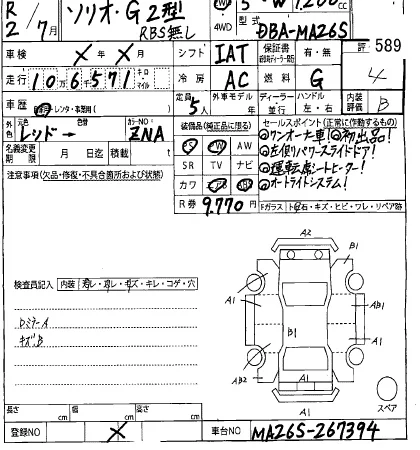 R 2/7月 ソリオ・G2型 RBS無し 4WD 1,200cc
型式 DBA-MA26S
車検 ×年×月 シフト IAT 保証書 有・無 評 589
走行 106571 キロ マイル 冷房 AC 燃料 G 4
車歴 レンタ・事業用( ) 定員 5人 外車モデル 年 ディーラー 並行 ハンドル 左・右 内装評価 B
外色 元色 レッド→ 色替 カラーNO ZNA
名義変更期限 月 日迄 積載 t
装備品(純正品に限る)
PS PW AW
SR TV ナビ
カワ エアB ABS
R券 9,770円
セールスポイント(正常に作動するもの)
◎ワンオーナー車!◎初出品!
◎左側パワースライドドア!
◎運転席シートヒーター!
◎オートライトシステム!
注意事項(欠品・修復・不具合箇所および状態)
Fガラス ト石・キズ・ヒビ・ワレ・リペア跡
検査員記入 内装 汚レ・スレ・キズ・キレ・コゲ・穴
DミラーA
キズB
A2
B1
A1
A1
AB1
B1
A1
A1
AB2
A1
A1
スペア
長さ cm 幅 cm 高さ cm
登録NO × 車台NO MA26S-267394